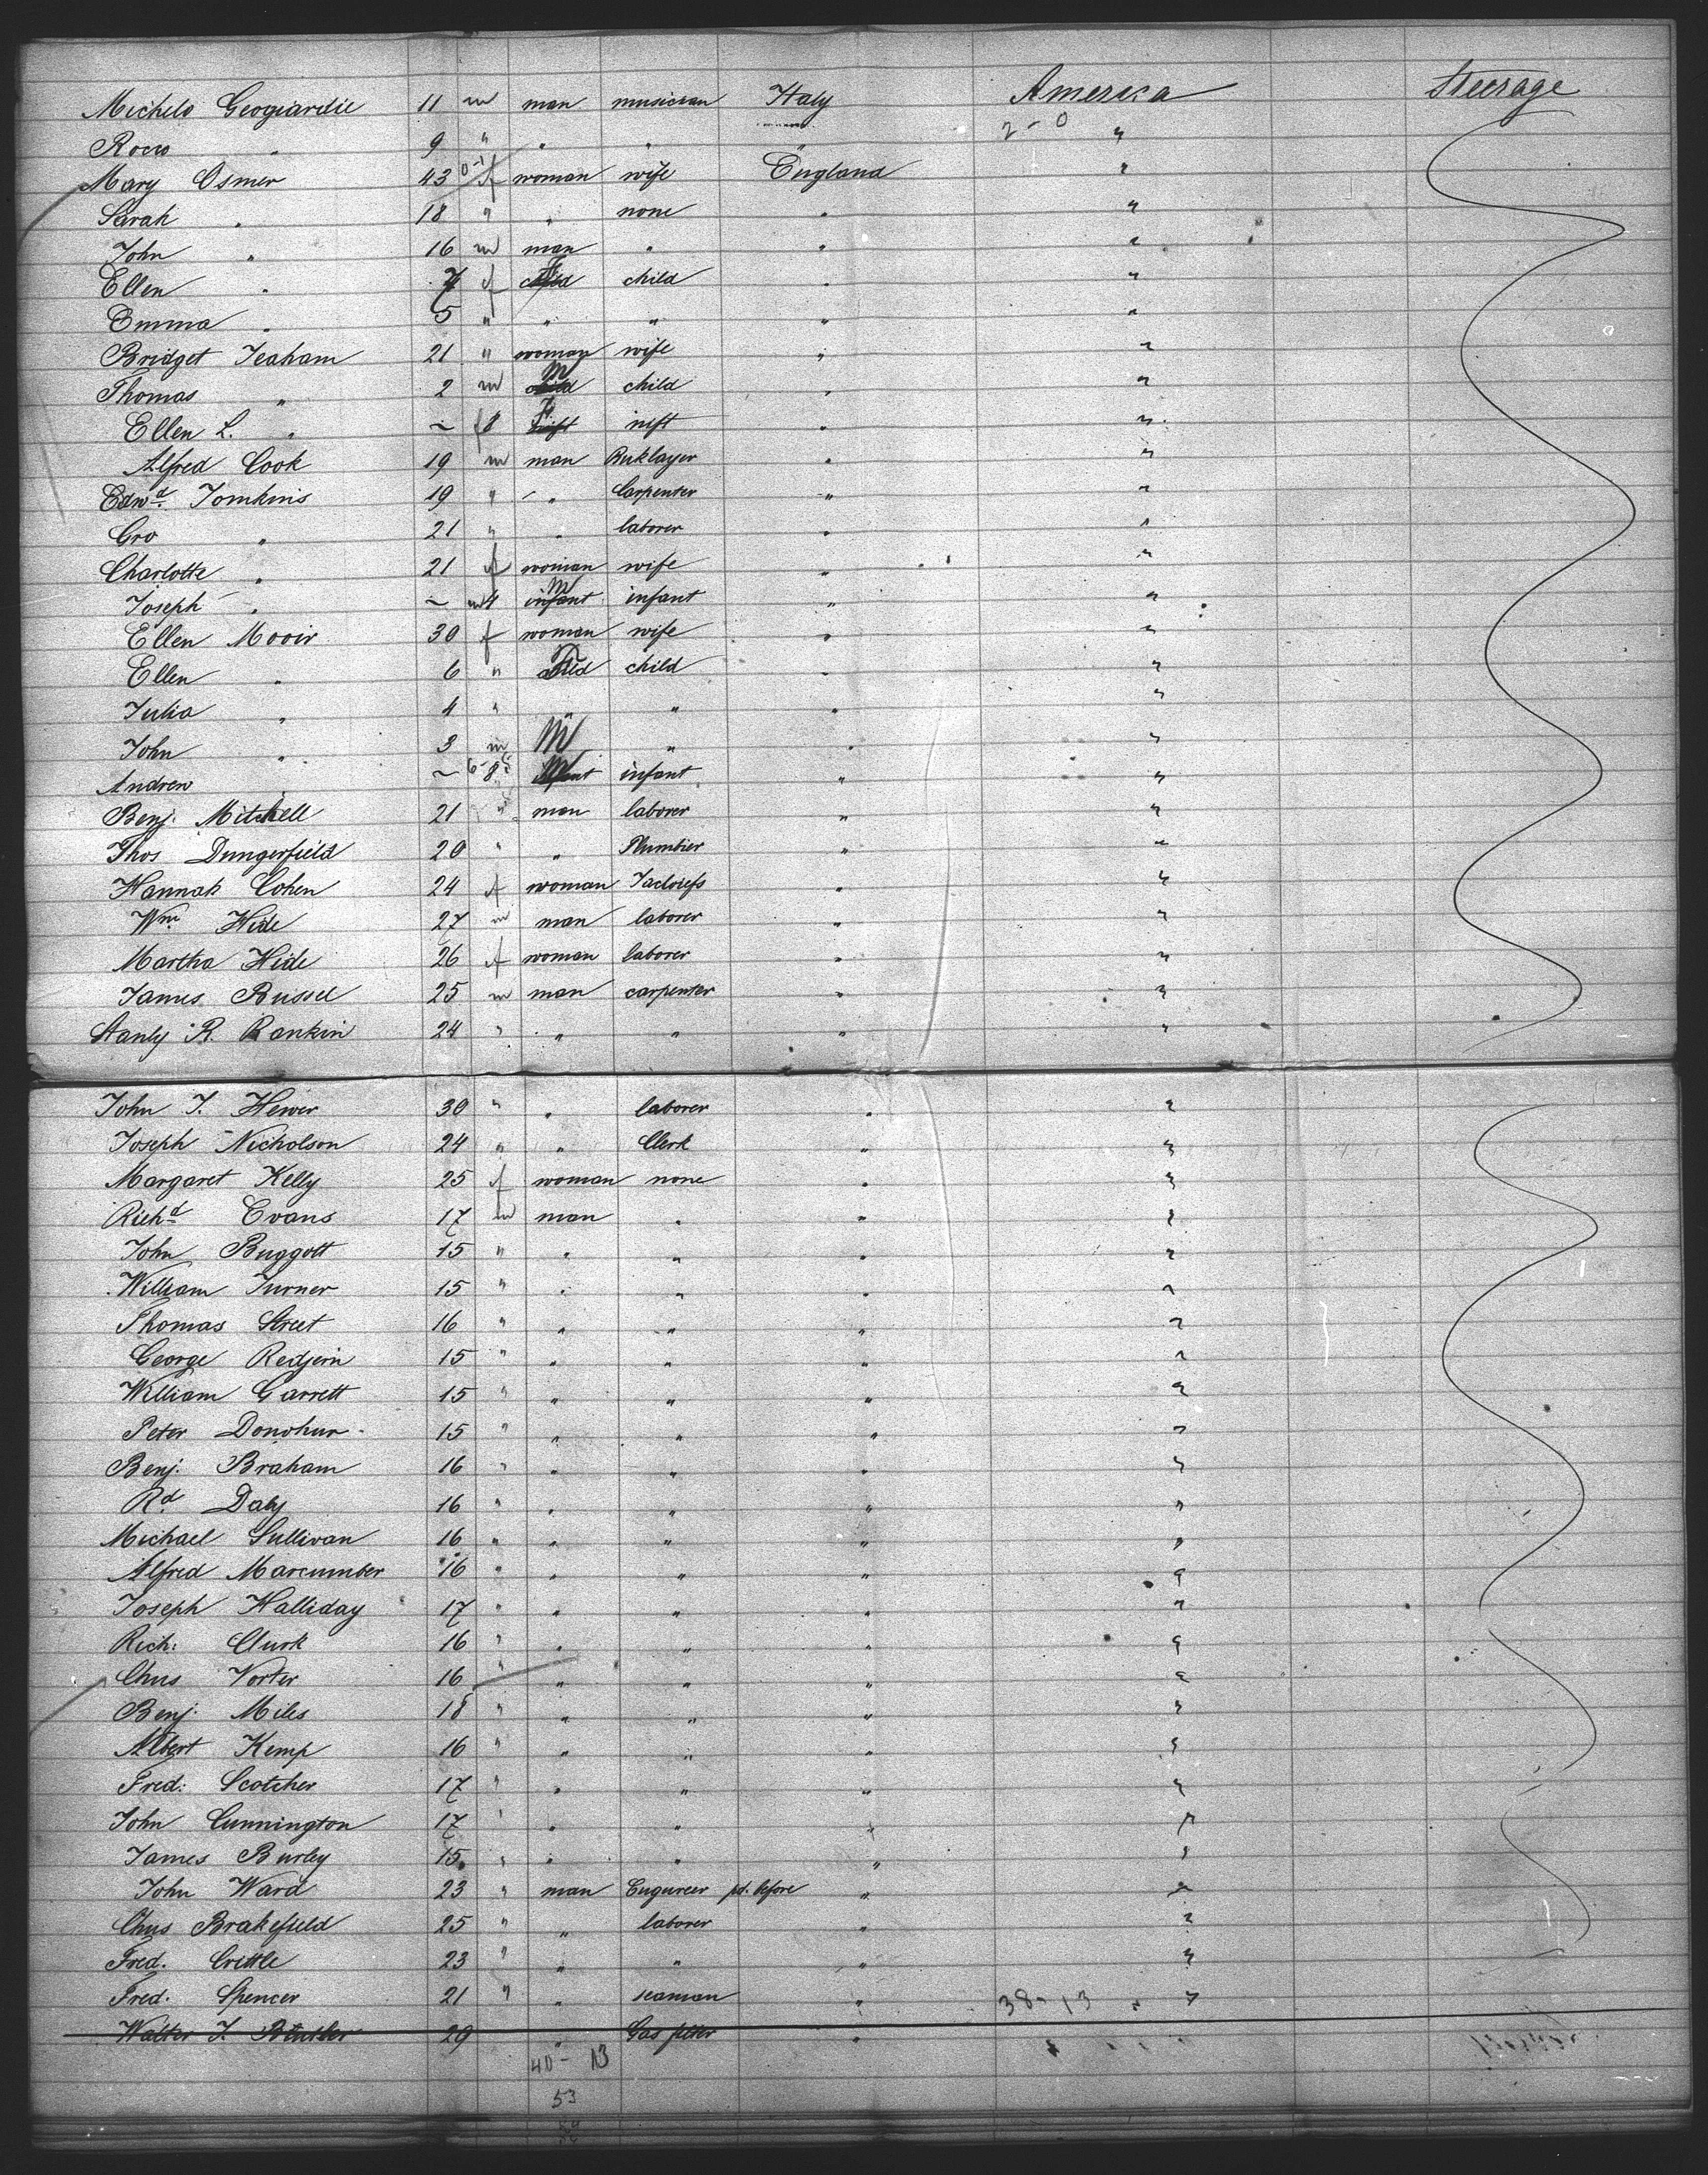 Michelo Geogiardie 11 m man musician Italy America Steerage
Rocco " 9 " " " 2-0 "
Mary Osmer 43 f woman wife England "
Sarah " 18 " " none " "
John " 16 m man " " "
Ellen " 7 f child F child " "
Emma " 5 " " " " "
Bridget Teaham 21 " woman wife " "
Thomas " 2 m child M child " "
Ellen L. " ~ f 8 inft F inft " "
Alfred Cook 19 m man Bricklayer " "
Edwd. Tomkins 19 " " Carpenter " "
Geo " 21 " " laborer " "
Charlotte " 21 f woman wife " "
Joseph " ~ m 4 infant M infant " "
Ellen Mooir 30 f woman wife " "
Ellen " 6 " child F child " "
Julia " 4 " " " " "
John " 3 m M " " "
Andrew " ~ 8 infant M infant " "
Benj. Mitchell 21 " man laborer " "
Thos Dungerfield 20 " " Plumbier " "
Hannah Cohen 24 f woman Tailoress " "
Wm Hide 27 m man laborer " "
Martha Hide 26 f woman laborer " "
James Bussel 25 m man carpenter " "
Stanly R. Rankin 24 " " " " "
John T. Hewer 30 " " laborer " "
Joseph Nicholson 24 " " Clerk " "
Margaret Kelly 25 f woman none " "
Richd Evans 17 m man " " "
John Buggott 15 " " " " "
William Turner 15 " " " "
Thomas Street 16 " " " " "
George Redjern 15 " " " " "
William Garrett 15 " " " " "
Peter Donohue 15 " " " " "
Benj. Braham 16 " " " " "
Rd Daly 16 " " " " "
Michael Sullivan 16 " " " " "
Alfred Marcumber 16 " " " " "
Joseph Halliday 17 " " " " "
Rich: Clurk 16 " " " " "
Chas Vorter 16 " " " " "
Benj. Miles 18 " " " " "
Albert Kemp 16 " " " " "
Fred: Scotcher 17 " " " " "
John Cunnington 17 " " " " "
James Burley 15 " " " " "
John Ward 23 " man Engineer pd. before " "
Chas Brakefield 25 " " laborer " "
Fred. Crittle 23 " " " " "
Fred. Spencer 21 " " seaman " 38-13 "
Walter T. 29 " Gas fitter "
40 - 13
53